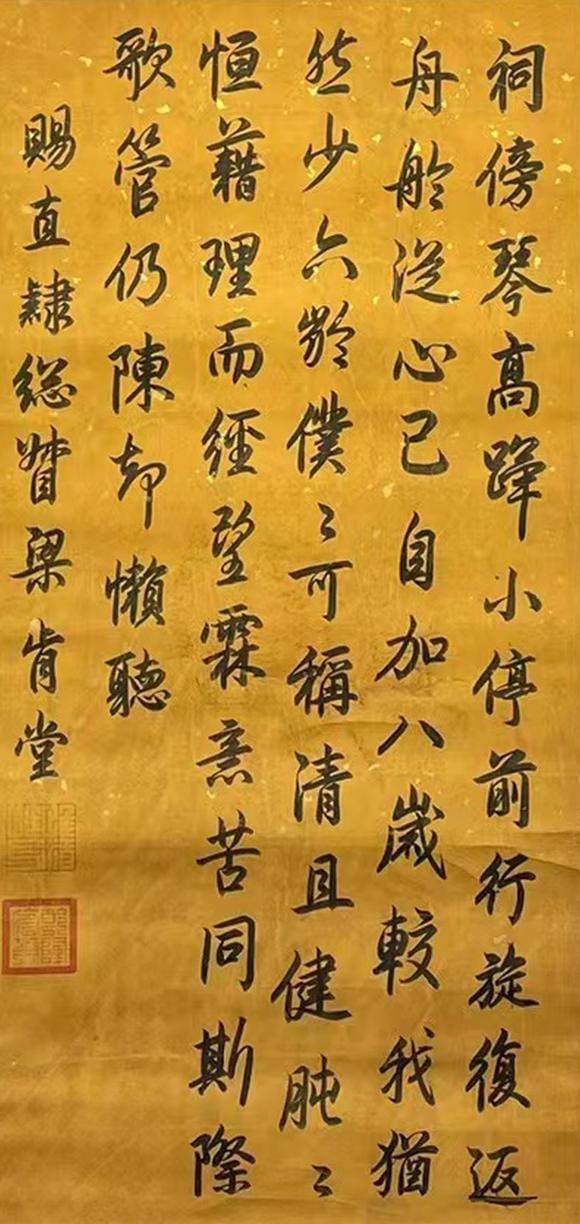 祠傍琴高蹕小停前行旋復返
舟舲從心已自加八歲較我猶
然少六齡僕〻可稱清且健肫〻
恒藉理而經望霖意苦同斯際
歌管仍陳却懶聽
賜直隸総督梁肯堂